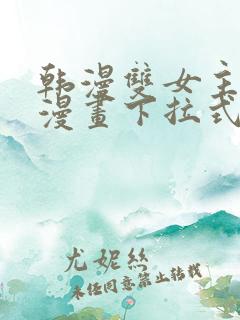 韩漫雙女主
漫畫下拉式
尤妮絲
未经同意禁止转载